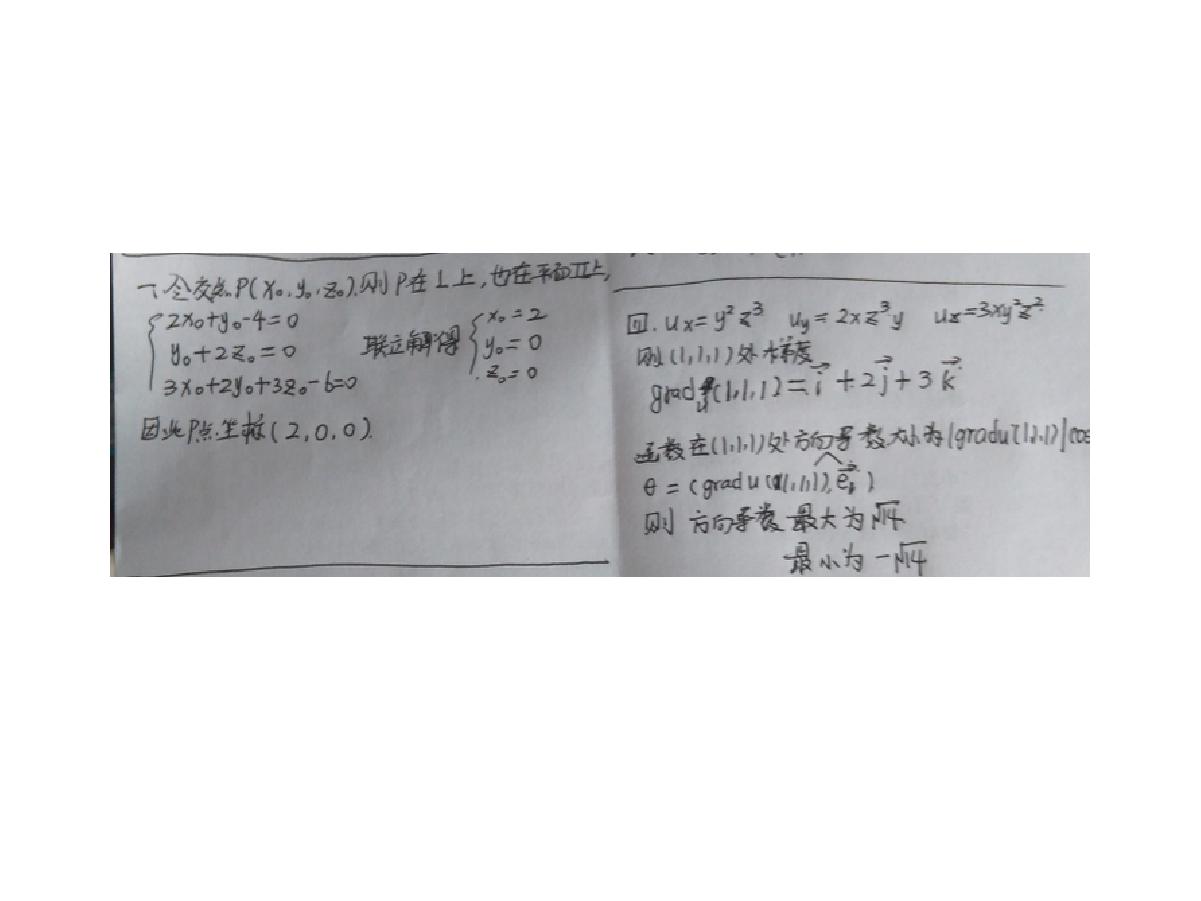 一、令交点P(x₀,y₀,z₀).则P在L上,也在平面Π上,
2x₀+y₀-4=0
y₀+2z₀=0
3x₀+2y₀+3z₀-6=0
联立解得
x₀=2
y₀=0
z₀=0
因此P点坐标(2,0,0).
四. uₓ=y²z³ u_y=2xz³y u_z=3xy²z²
则(1,1,1)处梯度
grad u(1,1,1)=i⃗+2j⃗+3k⃗
函数在(1,1,1)处方向导数大小为|gradu(1,1,1)|cos
θ=(gradu(1,1,1),e⃗)
则 方向导数最大为√14
最小为-√14